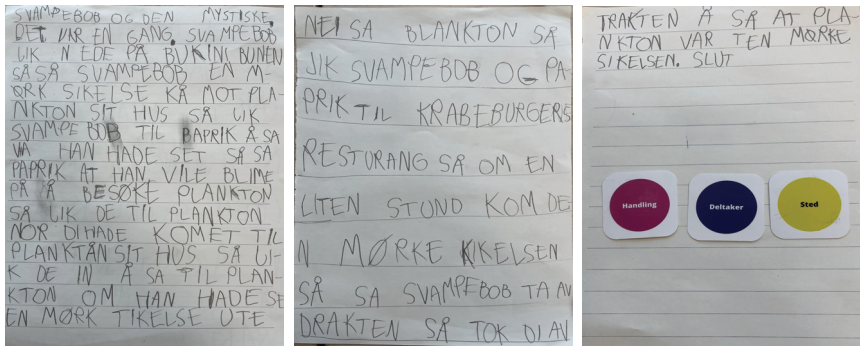 SVAMPEBOB OG DEN MYSTISKE.
DET VAR EN GANG. SVAMPEBOB
JIK N EDE PÅ BUKINI BUNEN
SÅ SÅ SVAMPEBOB EN M-
ØRK SIKELSE KÅ MOT PLA-
NKTON SIT HUS SÅ JIK
SVAMPE BOB TIL PAPRIK Å SA
VA HAN HADE SET SÅ SA
PAPRIK AT HAN VILE BLIME
PÅ Å BESØKE PLANKTON
SÅ JIK DE TIL PLANKTON
NOR DI HADE KOMET TIL
PLANKTÅN SIT HUS SÅ JI-
K DE IN Å SA TIL PLAN-
KTON OM HAN HADE SE
EN MØRK TIKELSE UTE
NEI SA BLANKTON SÅ
JIK SVAMPEBOB OG PA-
PRIK TIL KRABEBURGERS
RESTURANG SÅ OM EN
LITEN STUND KOM DE-
N MØRKE KIKELSEN
SÅ SA SVAMPEBOB TA AV
DRAKTEN SÅ TOK DI AV
TRAKTEN Å SÅ AT PLA-
NKTON VAR TEN MØRKE
SIKELSEN. SLUT
Handling Deltaker Sted